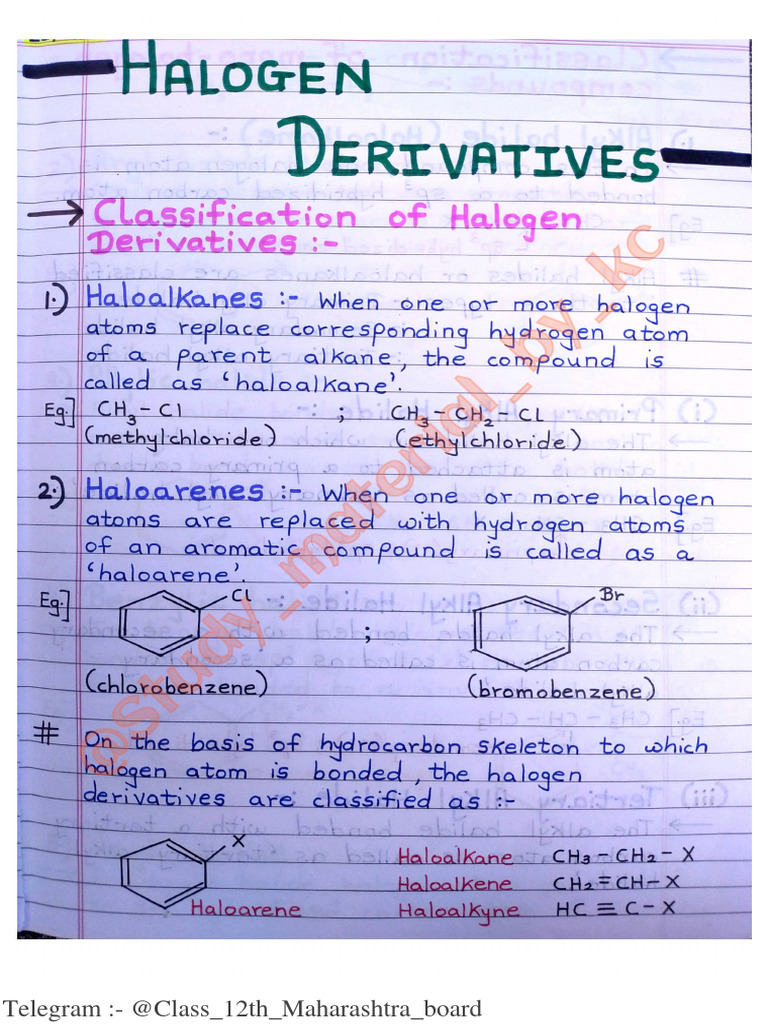 HALOGEN
DERIVATIVES
→ Classification of Halogen
Derivatives :-
1.) Haloalkanes :- When one or more halogen
atoms replace corresponding hydrogen atom
of a parent alkane, the compound is
called as 'haloalkane'.
Eg.] CH₃ – Cl ; CH₃ – CH₂ – CL
(methylchloride) (ethylchloride)
2.) Haloarenes :- When one or more halogen
atoms are replaced with hydrogen atoms
of an aromatic compound is called as a
'haloarene'.
Eg.] Cl ; Br
(chlorobenzene) (bromobenzene)
# On the basis of hydrocarbon skeleton to which
halogen atom is bonded, the halogen
derivatives are classified as :-
X
Haloalkane CH₃ – CH₂ – X
Haloalkene CH₂ = CH – X
Haloarene Haloalkyne HC ≡ C – X
@Study_material_by_kc
Telegram :- @Class_12th_Maharashtra_board